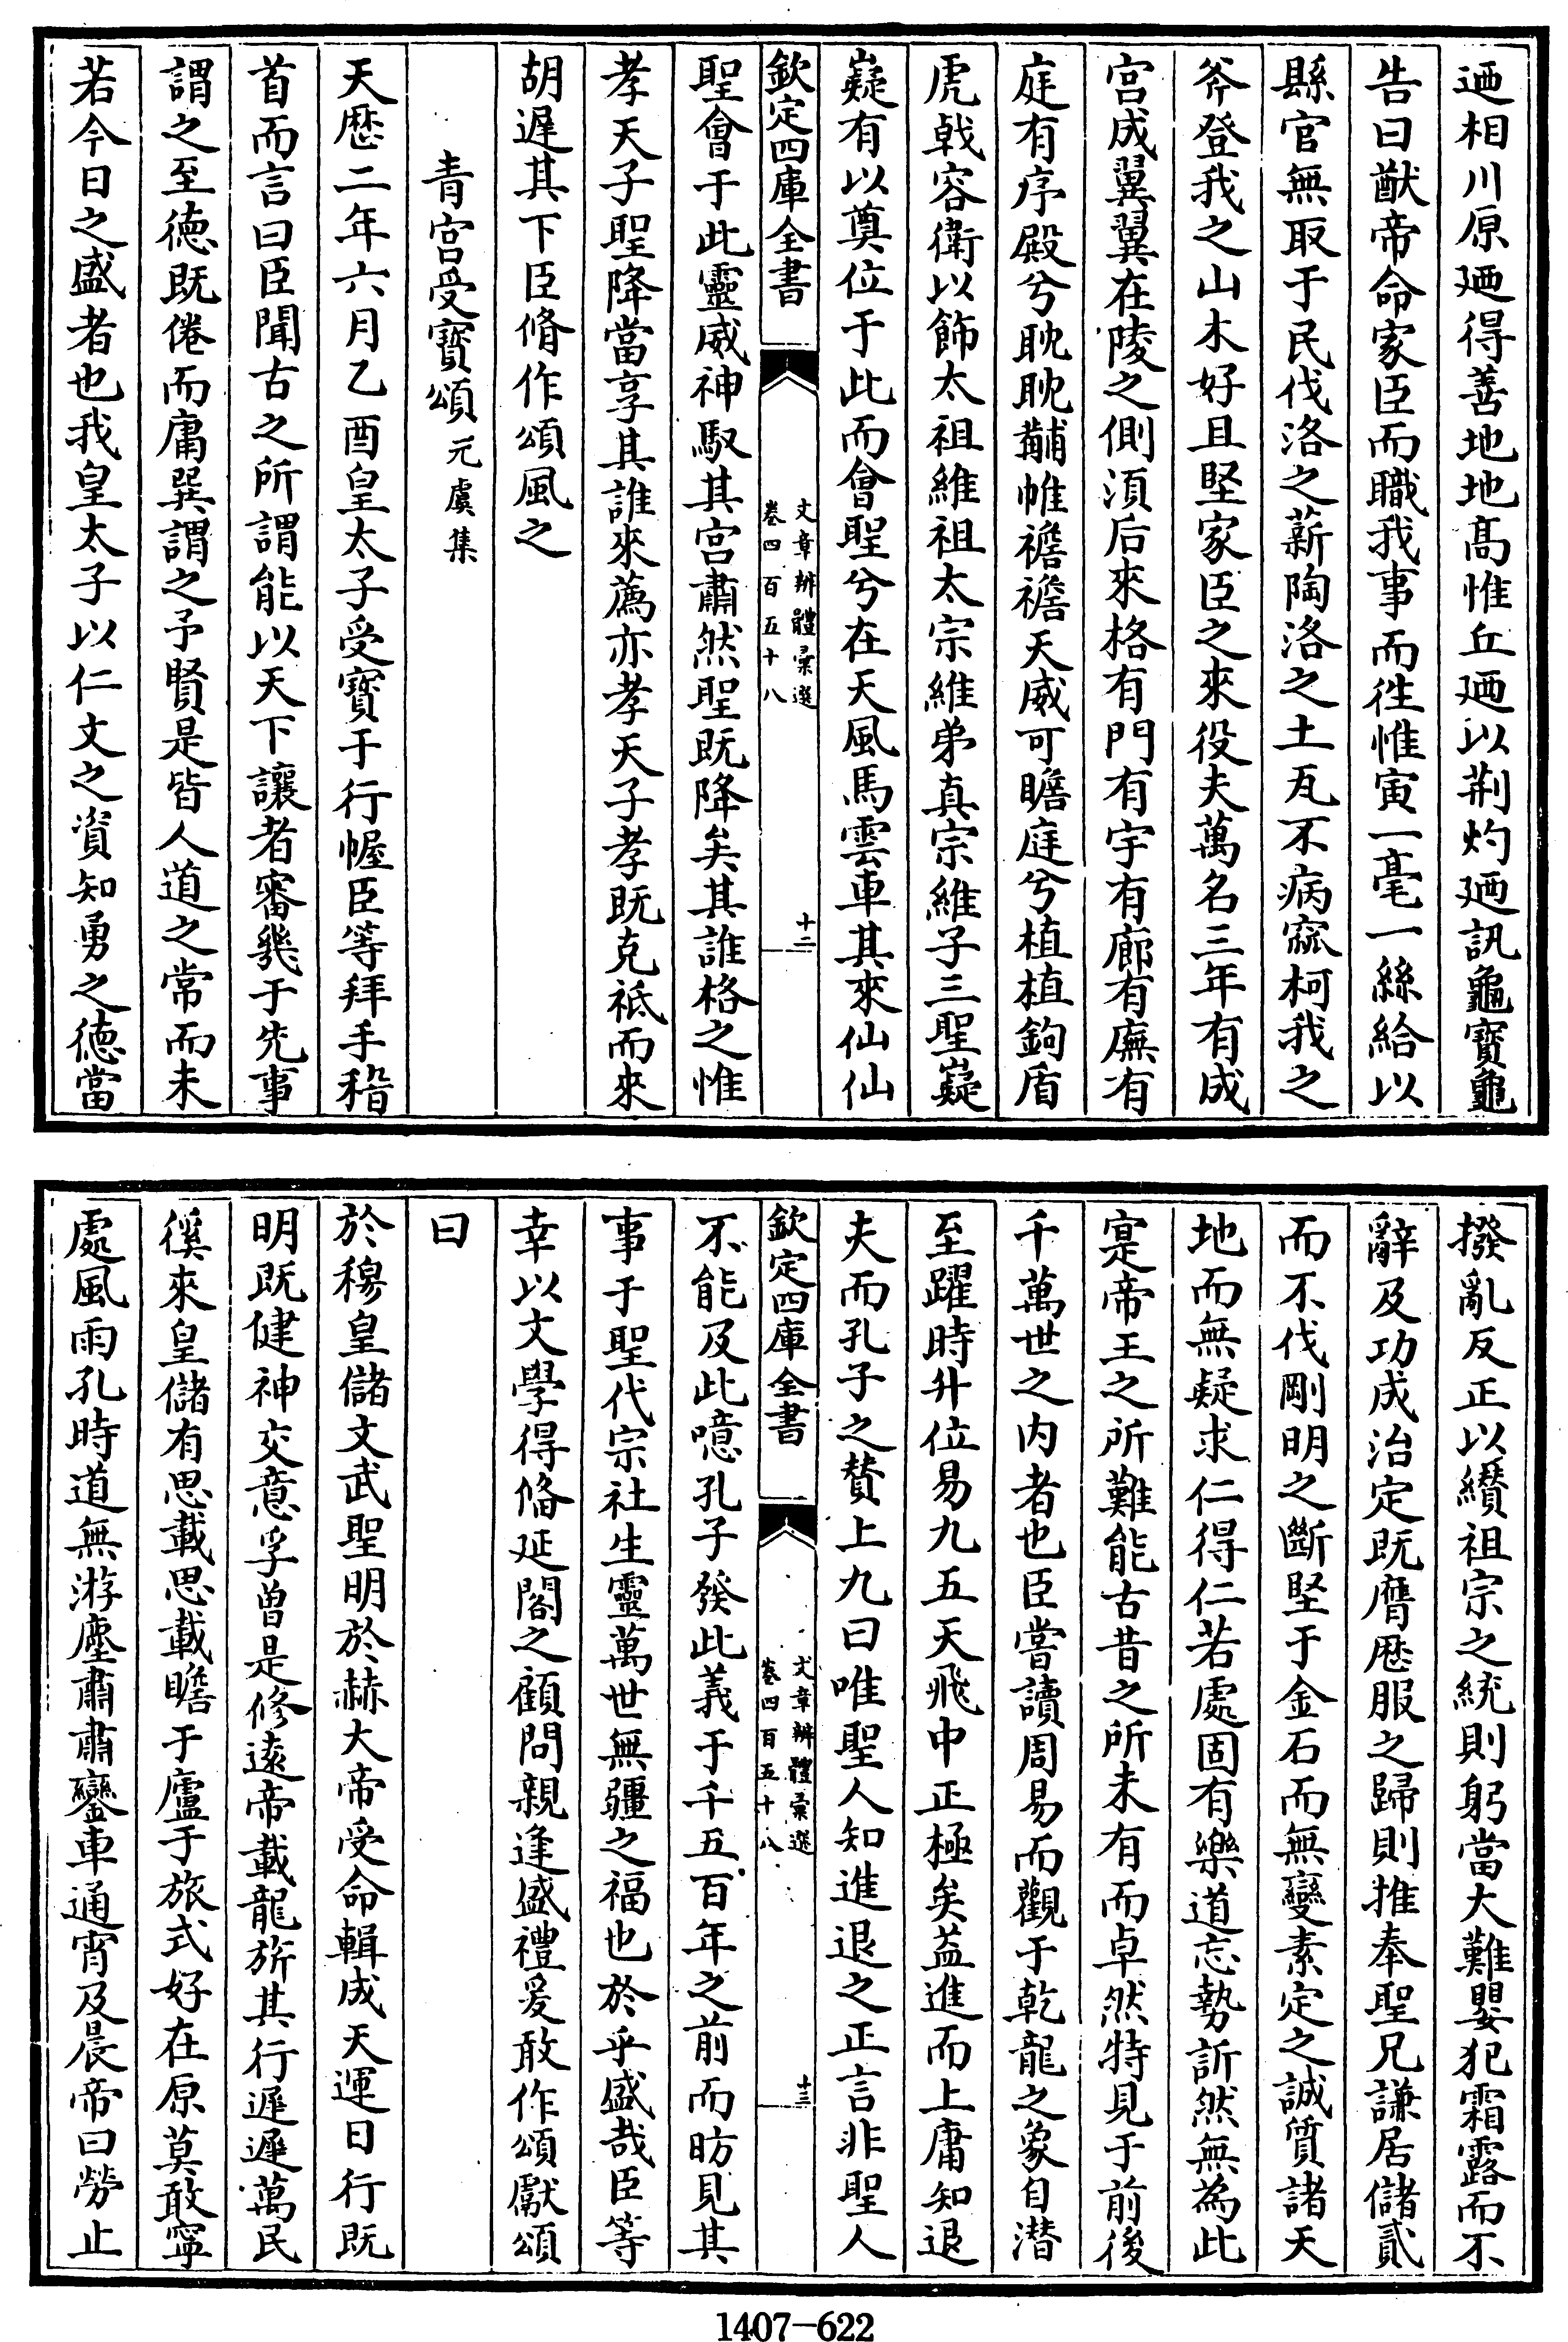 迺相川原廼得善地地髙惟丘廼以荆灼廼訊龜寳龜
告曰猷帝命家臣而職我事而徃惟寅一毫一絲給以
縣官無取于民伐洛之薪陶洛之土瓦不病窳柯我之
斧登我之山木好且堅家臣之來役夫萬名三年有成
宫成翼翼在陵之側湏后來格有門有宇有廊有廡有
庭有序殿兮耽耽黼帷襜襜天威可瞻庭兮植植鉤盾
虎戟容衛以飾太祖維祖太宗維弟真宗維子三聖嶷
嶷有以奠位于此而會聖兮在天風馬雲車其來仙仙
欽定四庫全書
文章辨體彚選
卷四百五十八
十二
聖會于此靈威神馭其宫肅然聖既降矣其誰格之惟
孝天子聖降當享其誰來薦亦孝天子孝既克祗而來
胡遲其下臣脩作頌風之
青宫受寳頌元虞集
天厯二年六月乙酉皇太子受寳于行幄臣等拜手稽
首而言曰臣聞古之所謂能以天下讓者審幾于先事
謂之至徳既倦而庸巽謂之予賢是皆人道之常而未
若今日之盛者也我皇太子以仁文之資知勇之徳當
撥亂反正以纘祖宗之統則躬當大難嬰犯霜露而不
辭及功成治定既膺厯服之歸則推奉聖兄謙居儲貳
而不伐剛明之斷堅于金石而無變素定之誠質諸天
地而無疑求仁得仁若處固有樂道忘勢訢然無為此
寔帝王之所難能古昔之所未有而卓然特見于前後
千萬世之内者也臣嘗讀周易而觀于乾龍之象自潛
至躍時升位易九五天飛中正極矣葢進而上庸知退
夫而孔子之賛上九曰唯聖人知進退之正言非聖人
欽定四庫全書
文章辨體彚選
卷四百五十八
十三
不能及此噫孔子發此義于千五百年之前而昉見其
事于聖代宗社生靈萬世無疆之福也於乎盛哉臣等
幸以文學得偹延閣之顧問親逢盛禮爰敢作頌獻頌
曰
於穆皇儲文武聖明於赫大帝受命輯成天運日行既
明既健神交意孚曽是修逺帝載龍旂其行遲遲萬民
徯來皇儲有思載思載瞻于廬于旅式好在原莫敢寧
處風雨孔時道無游塵肅肅鑾車通宵及晨帝曰勞止
1407-622